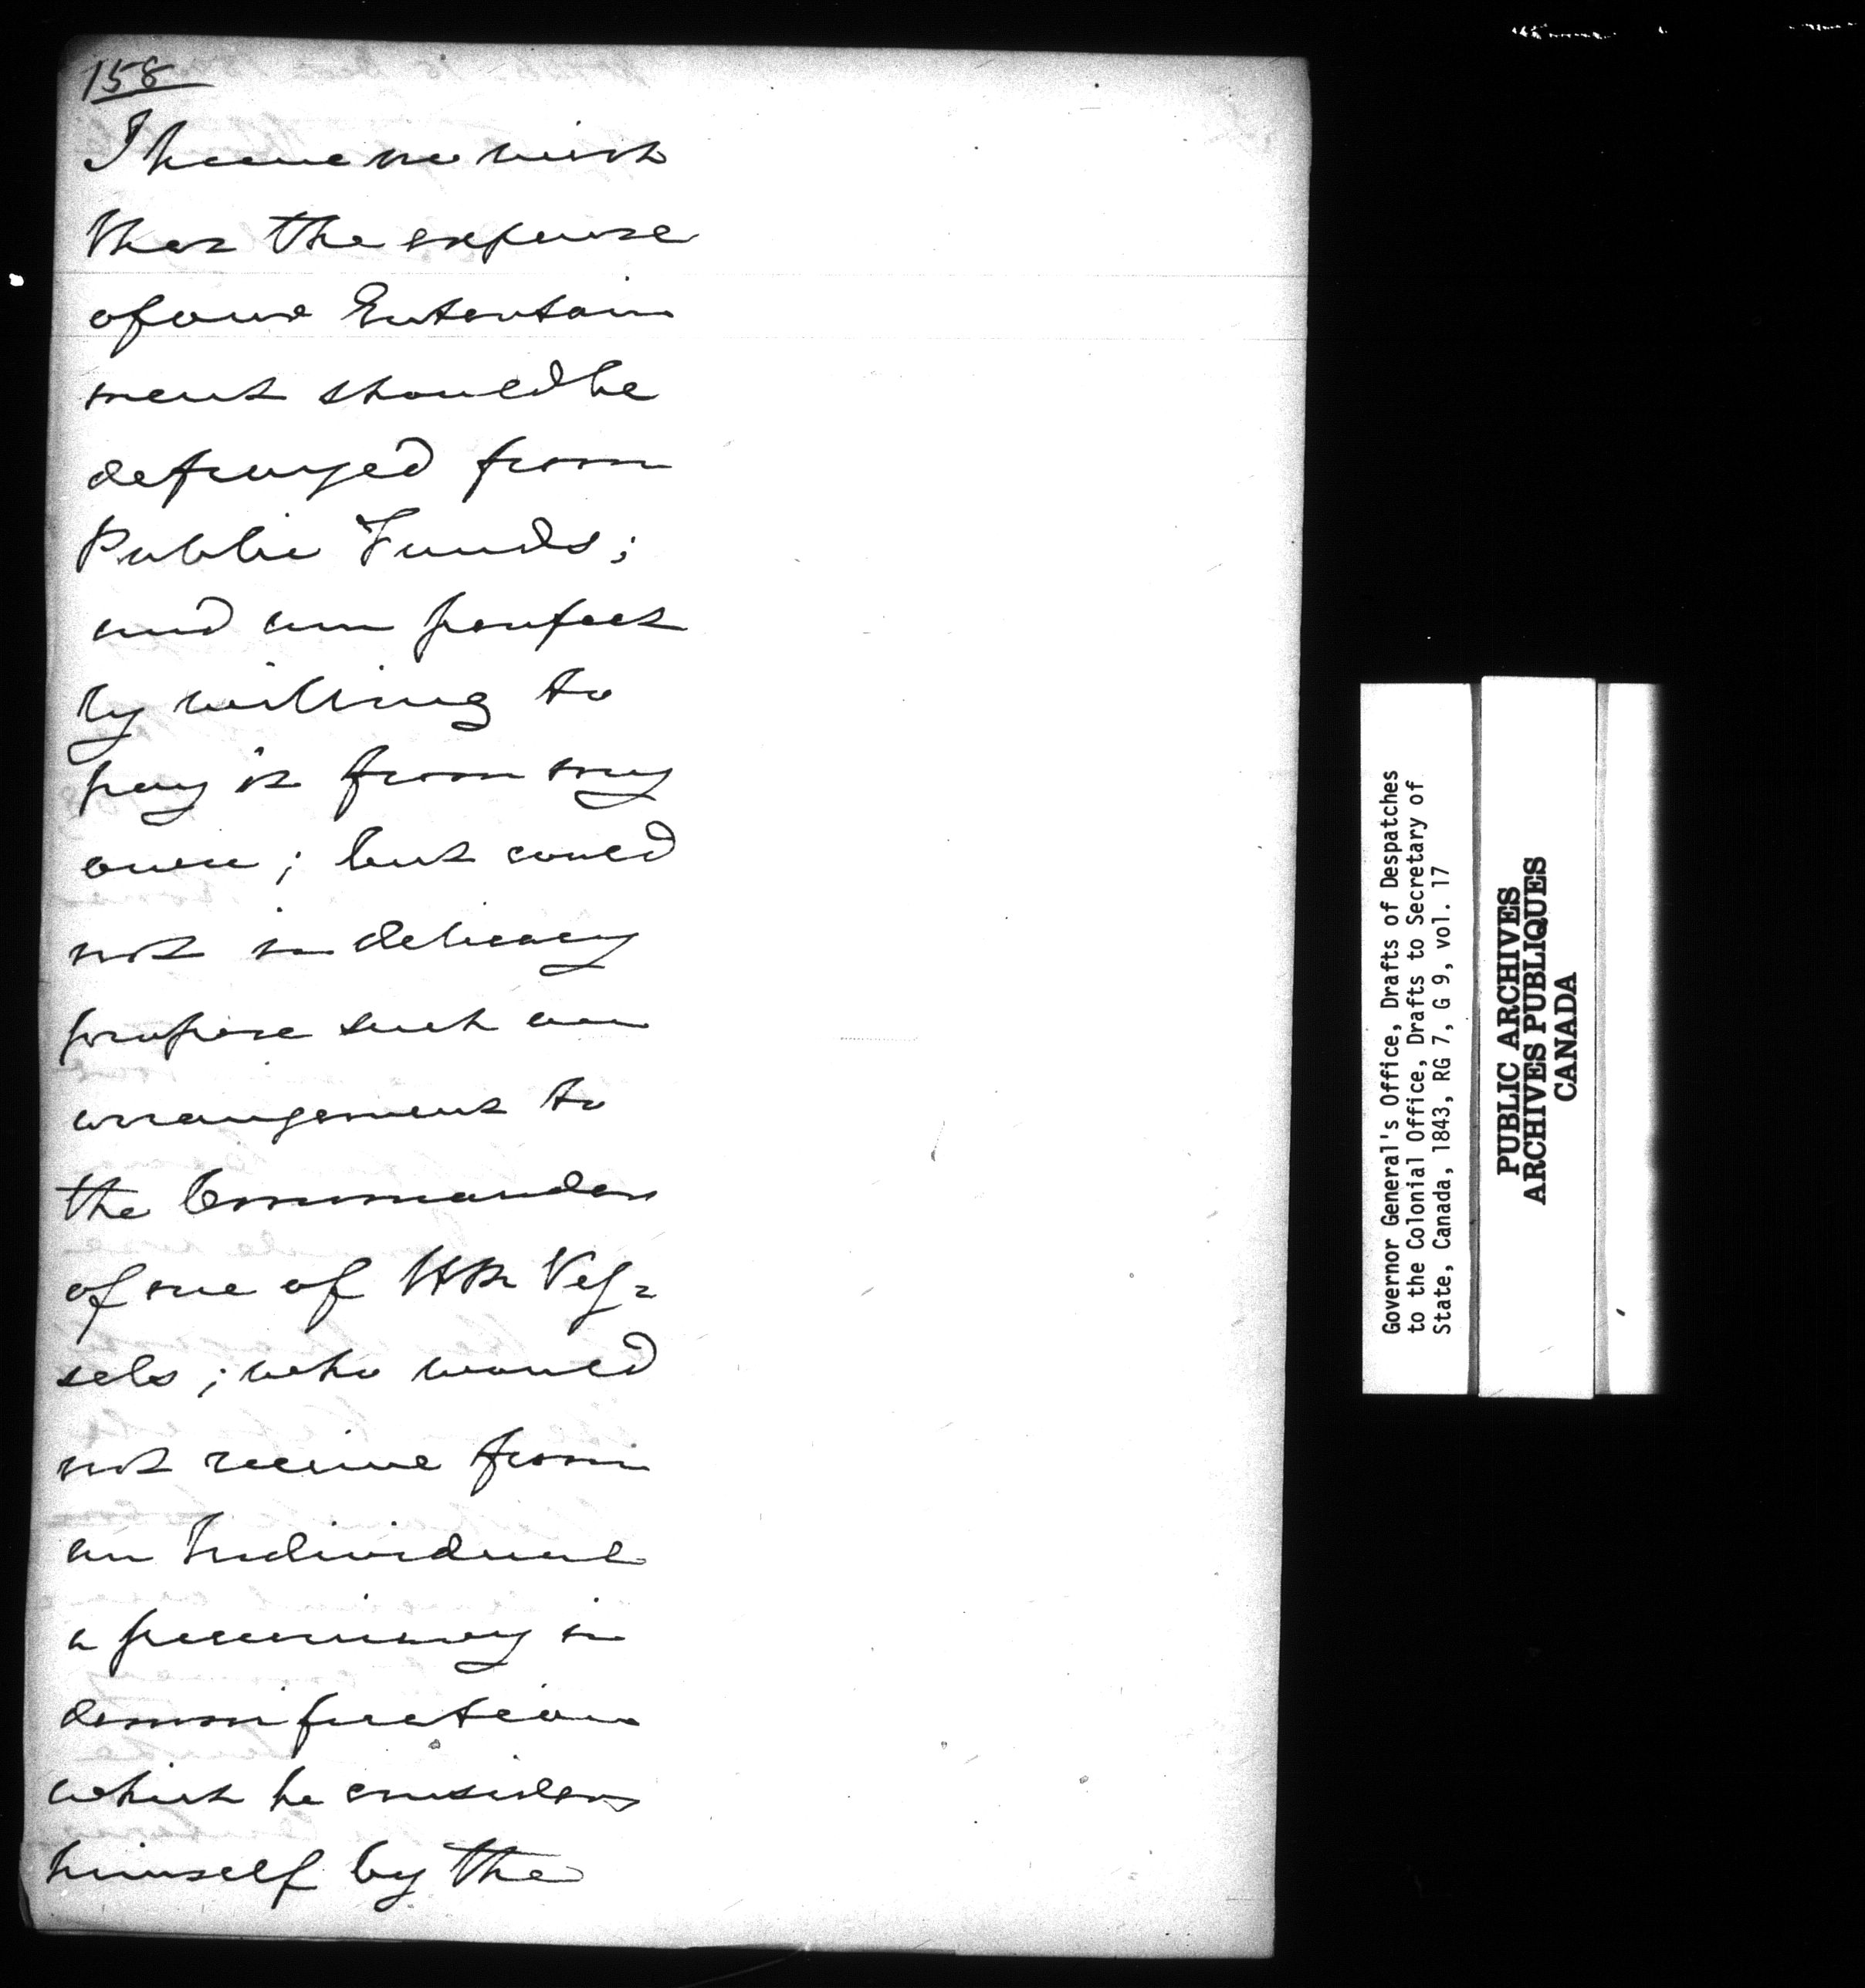 158
I have no wish
that the expense
of our Entertain
ment should be
defrayed from
Public Funds;
and am perfect
ly willing to
pay it from my
own; but could
not in delicacy
propose such an
arrangement to
the Commander
of one of HM Ves=
sels; who would
not receive from
an Individual
a pecuniary in
demnification
which he considers
himself by the
Governor General's Office, Drafts of Despatches
to the Colonial Office, Drafts to Secretary of
State, Canada, 1843, RG 7, G 9, vol. 17
PUBLIC ARCHIVES
ARCHIVES PUBLIQUES
CANADA